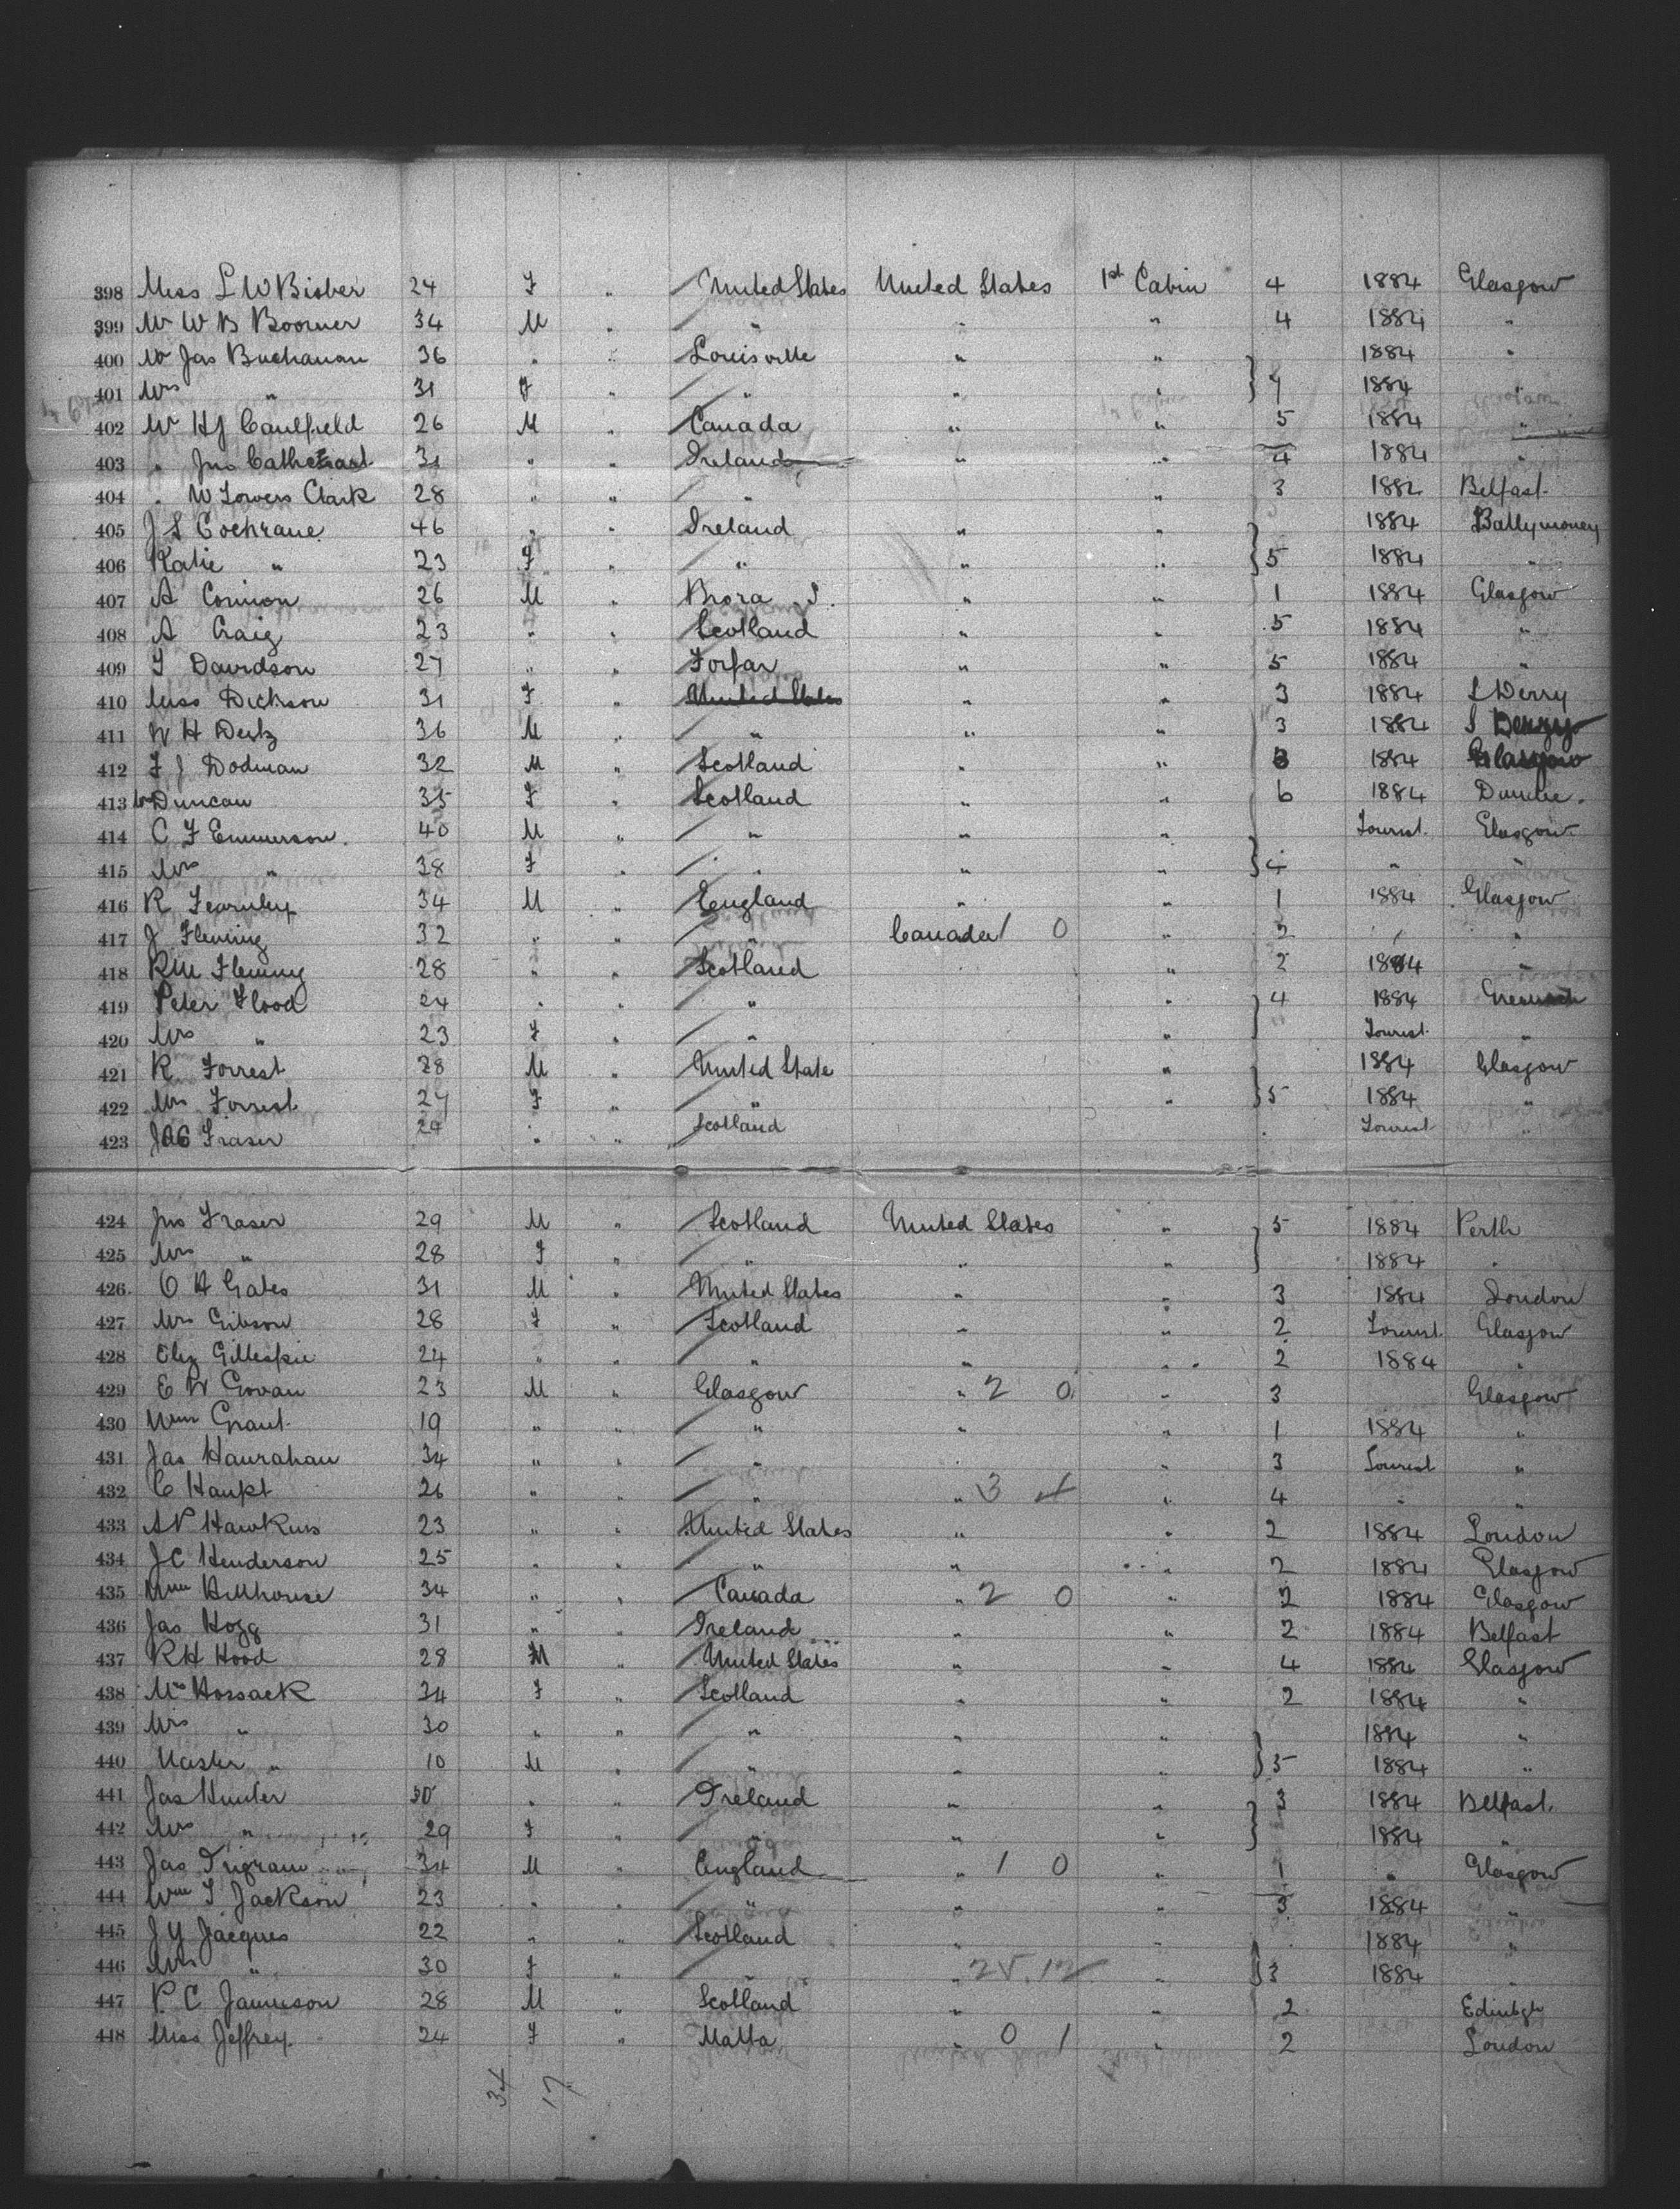 398 Miss L W Bisber 24 F " United States United States 1st Cabin 4 1884 Glasgow
399 Mr W B Boomer 34 M " " " " 4 1884 "
400 Mr Jas Buchanan 36 " " Louisville " " 1884 "
401 Mrs " 31 F " " " " 1884 "
402 Mr HJ Caulfield 26 M " Canada " " 5 1884 "
403 " Jno Cathcart 31 " " Ireland " " 4 1884 "
404 " W Towers Clark 28 " " " " 3 1884 Belfast
405 J S Cochrane 46 " Ireland " " 1884 Ballymoney
406 Katie " 23 F " " " " 5 1884 "
407 A Connon 26 M " Brora " " 1 1884 Glasgow
408 A Craig 23 " " Scotland " " 5 1884 "
409 J Davidson 27 " " Forfar " " 5 1884 "
410 Miss Dickson 31 F " United States " 3 1884 L Derry
411 W H Deitz 36 M " " " " 3 1884 L Derry
412 F J Dodman 32 M " Scotland " " 3 1884 Glasgow
413 Duncan 35 F " Scotland " " 6 1884 Dundee.
414 C F Emmerson. 40 M " " " " Tourist. Glasgow
415 Mrs " 38 F " " " " 4 " "
416 R Fearnley 34 M " England " " 1 1884 Glasgow
417 J Fleming 32 " " " Canada 1 0 " 2 " "
418 RM Fleming 28 " " Scotland " 2 1884 "
419 Peter Flood 24 " " " " 4 1884
420 Mrs " 23 F " " " Tourist. "
421 R Forrest 28 M " United State " 1884 Glasgow
422 Mrs Forrest 24 F " " " 5 1884 "
423 Fraser 24 " " Scotland Tourist "
424 Jno Fraser 29 M " Scotland United States " 5 1884 Perth
425 Mrs " 28 F " " " " 1884 "
426 O H Gates 31 M " United States " " 3 1884 London
427 Mrs Gibson 28 F " Scotland " " 2 Tourist Glasgow
428 Eliz Gillespie 24 " " " " " 2 1884 "
429 E W Govan 23 M " Glasgow " 2 0 " 3 Glasgow
430 Wm Grant 19 " " " " " 1 1884 "
431 Jas Hanrahan 34 " " " " " 3 Tourist "
432 C Haupt 26 " " " " 3 4 " 4 " "
433 A P Hawkins 23 " " United States " " 2 1884 London
434 J C Henderson 25 " " " " " 2 1884 Glasgow
435 Wm Hillhouse 34 " " Canada " 2 0 " 2 1884 Glasgow
436 Jas Hogg 31 " " Ireland " " 2 1884 Belfast
437 R H Hood 28 M " United States " " 4 1884 Glasgow
438 Mrs Hossack 34 F " Scotland " " 2 1884 "
439 Mrs " 30 " " " " " 1884 "
440 Master " 10 M " " " " 5 1884 "
441 Jas Hunter 30 " " Ireland " " 3 1884 Belfast.
442 Mrs " 29 F " " " " 1884 "
443 Jas Ingram 34 M " England " 1 0 " 1 " Glasgow
444 Wm T Jackson 23 " " " " " 3 1884 "
445 J Y Jacques 22 " " Scotland " " 1884 "
446 Mrs " 30 F " " " 25.12 " 3 1884 "
447 P. C Jamieson 28 M " Scotland " " 2 Edinbgh
448 Miss Jeffrey 24 F " Malta " 0 1 " 2 London
34 17